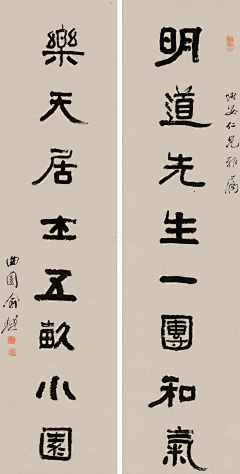 仁兄雅屬
明道先生一團和氣
樂天居士五畝小園
曲園俞樾